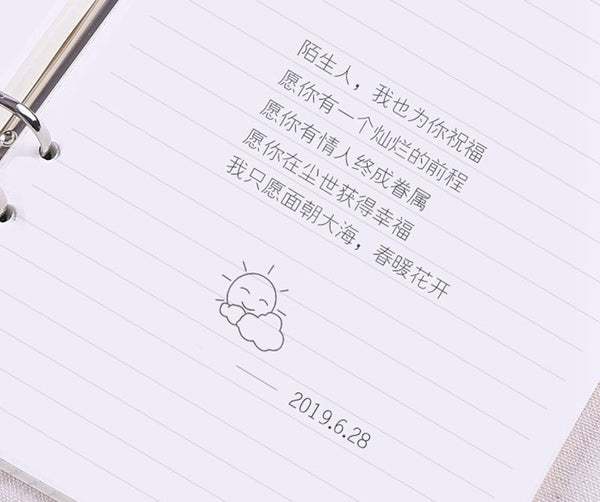 陌生人，我也为你祝福
愿你有一个灿烂的前程
愿你有情人终成眷属
愿你在尘世获得幸福
我只愿面朝大海，春暖花开
2019.6.28